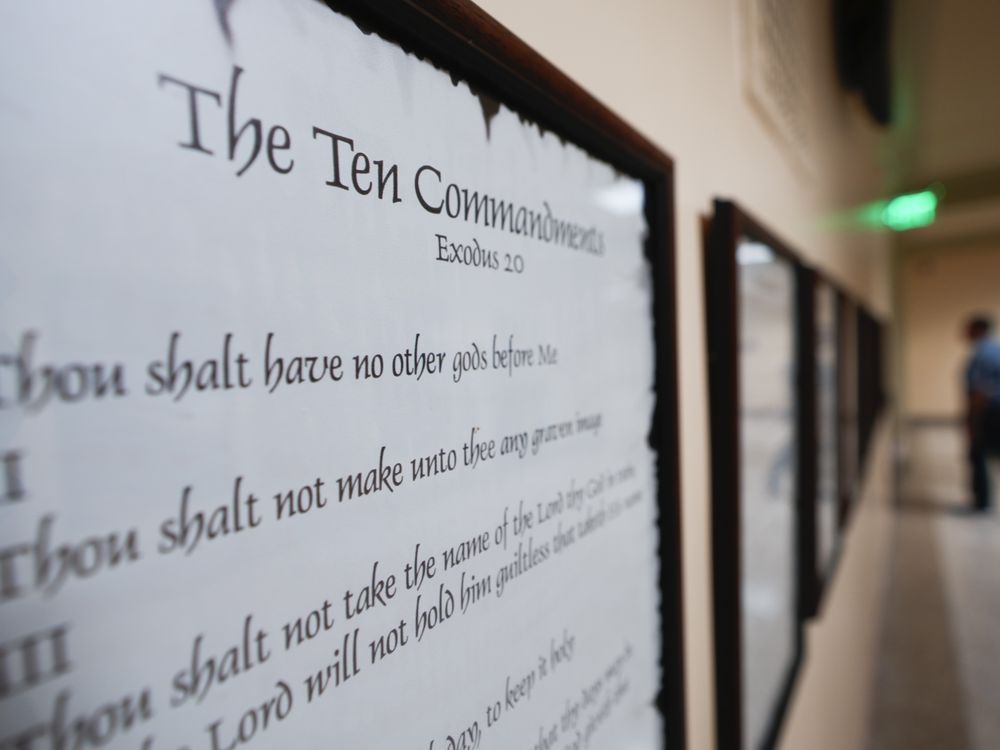 The Ten Commandments
Exodus 20
Thou shalt have no other gods before Me
II
Thou shalt not make unto thee any graven image
III
Thou shalt not take the name of the Lord thy God in vain,
the Lord will not hold him guiltless that taketh His name
day, to keep it holy
that thy days may be